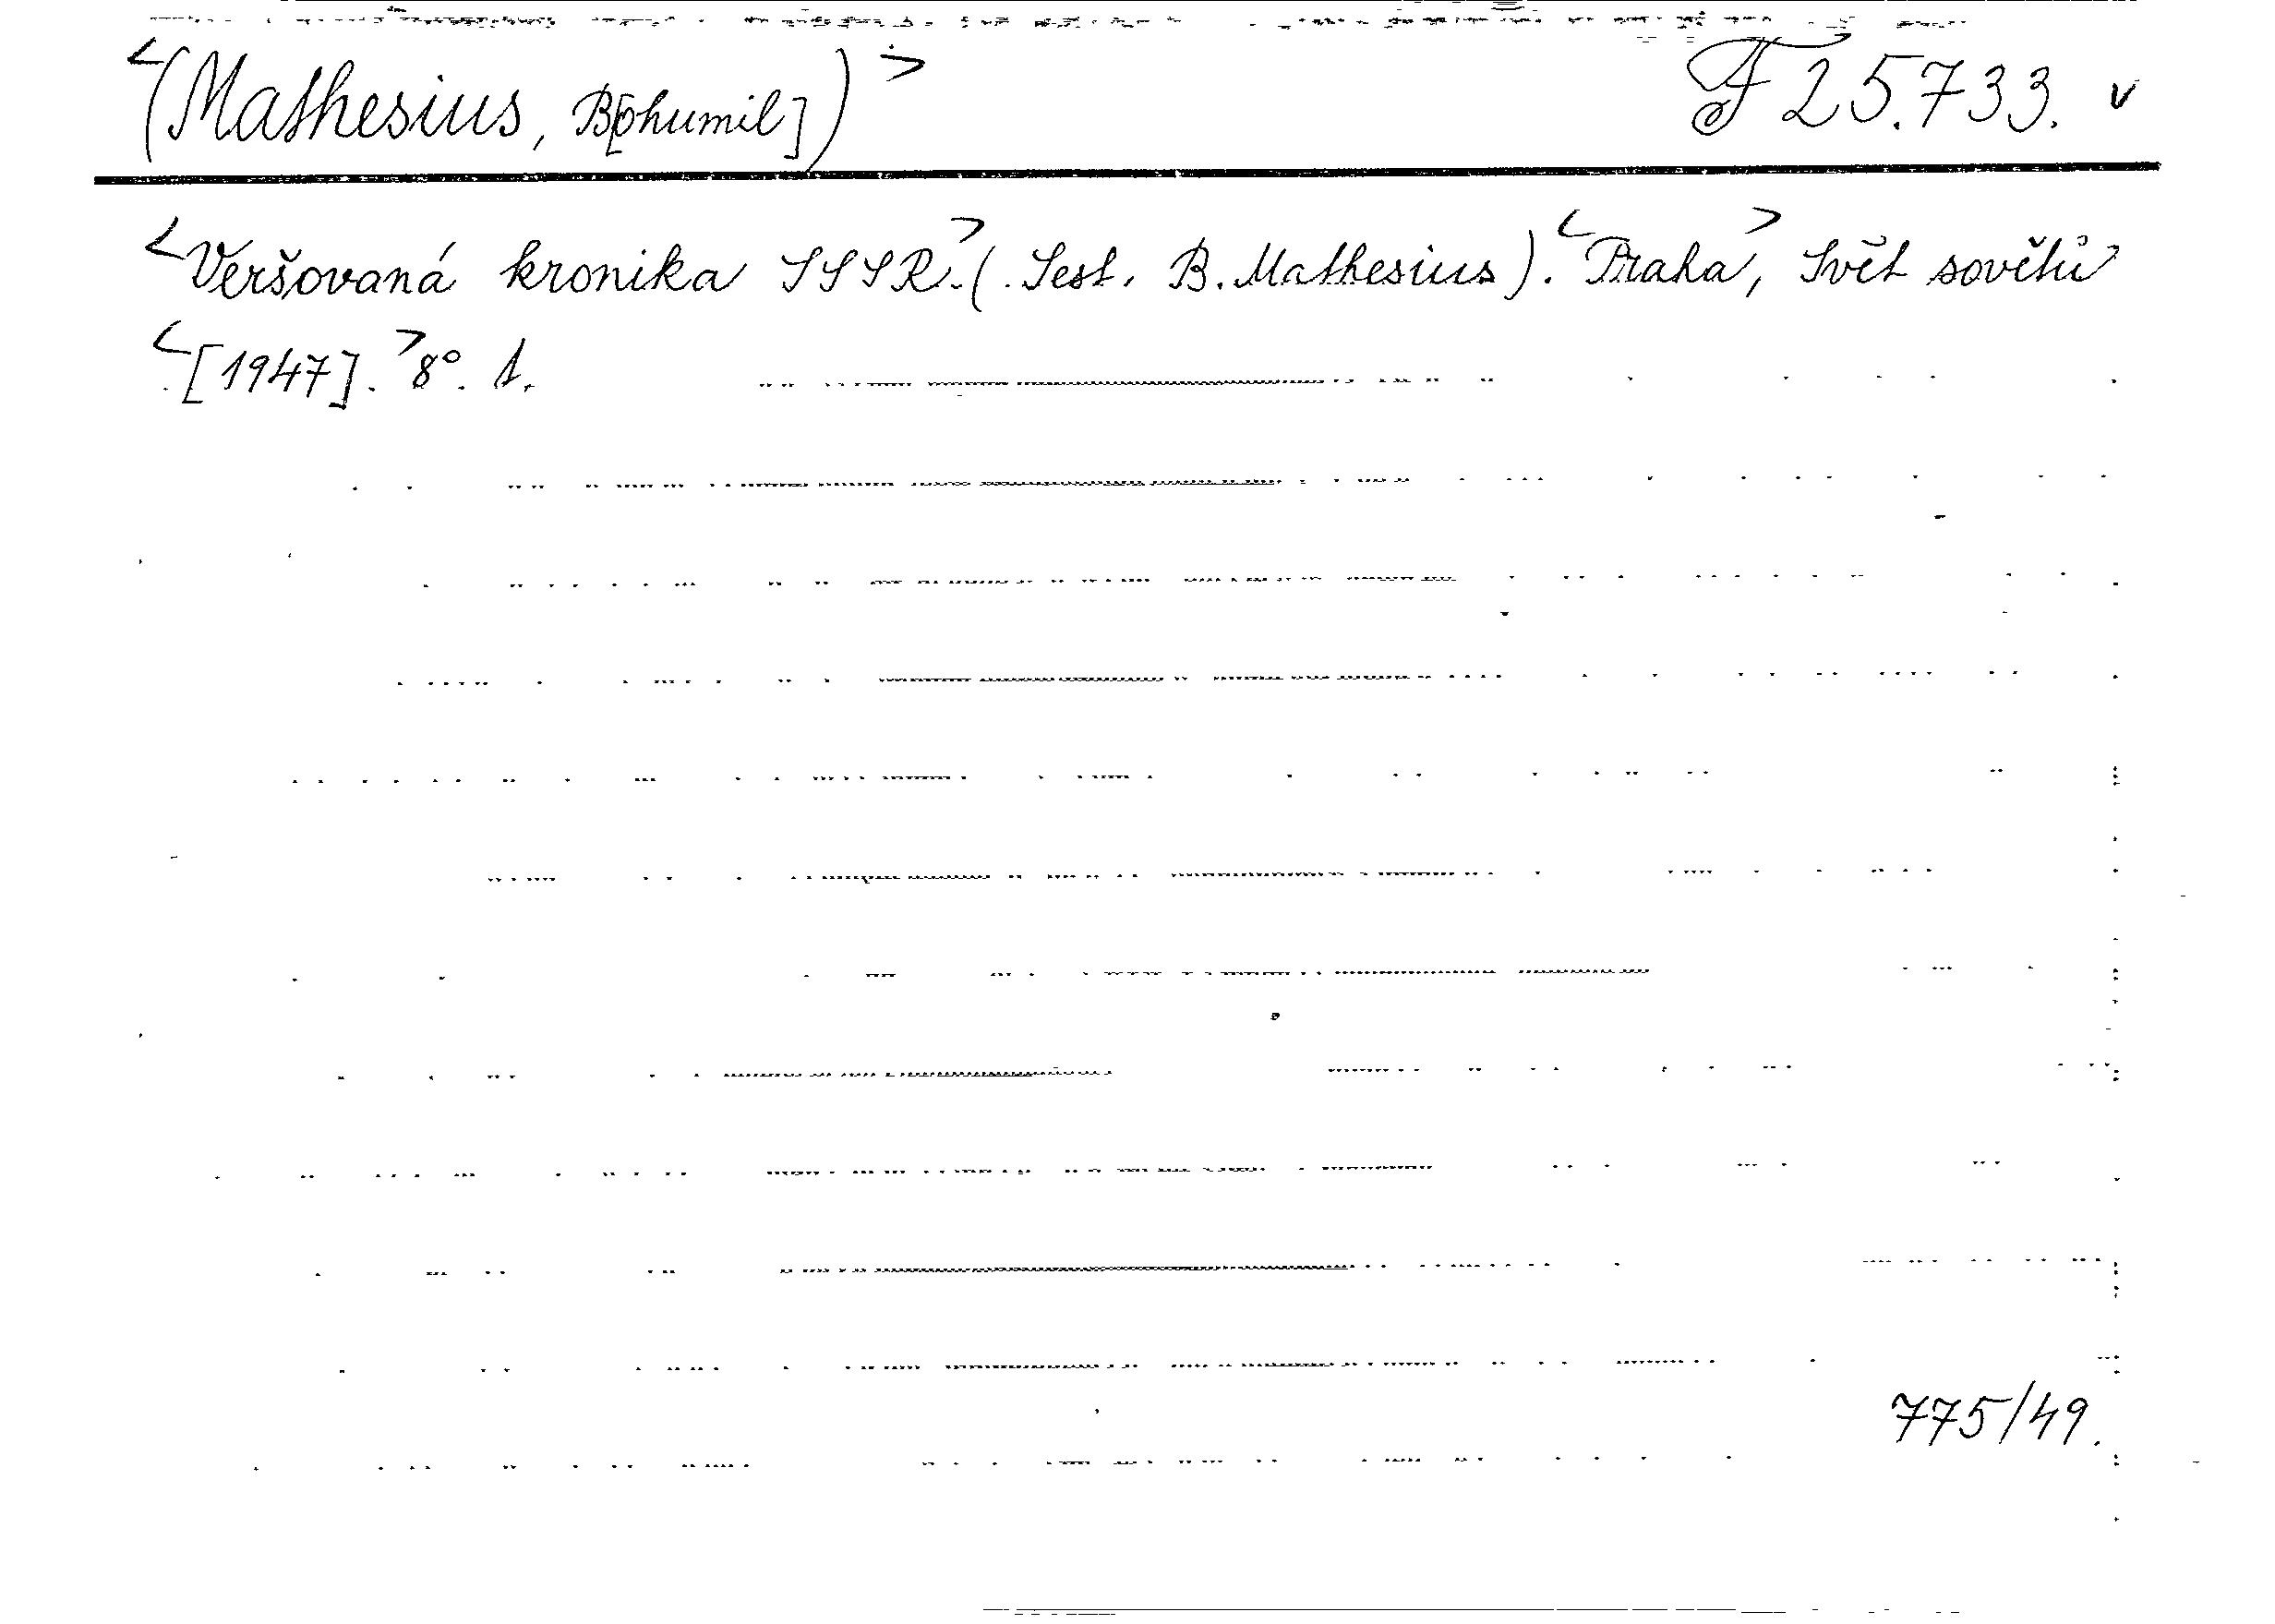 <(Mathesius, B[ohumil])> F 25.733. v
<Veršovaná kronika SSSR.>(. Sest. B. Mathesius). <Praha>, Svět sovětů
<[1947].> 8°. 1.
775/49.